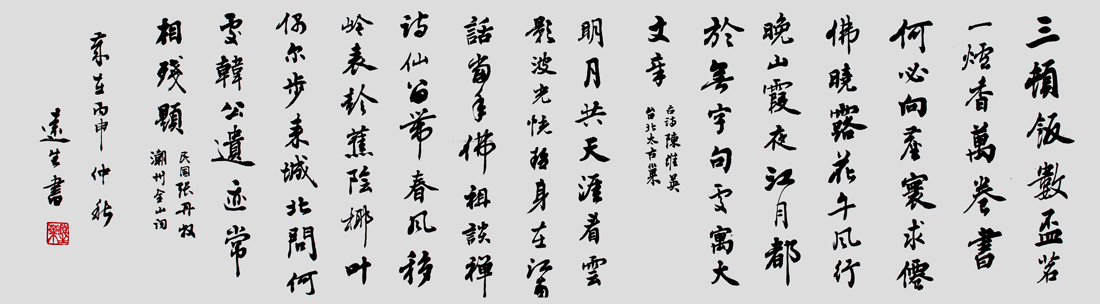 三頓飯數盃茗
一爐香萬卷書
何必向塵寰求僊
佛曉露花午風竹
晚山霞夜江月都
於無字句處寓大
文章
陳維英
台北太古巢
明月共天涯看雲
影波光恍身在江南
話當年佛祖談禪
詩仙留帶春風移
嶺表聽蕉陰椰叶
偶尔步来城北問何
處韓公遺迹常
相殘顯
民国張丹牧
潮州金山詞
歲在丙申仲秋
遠生書